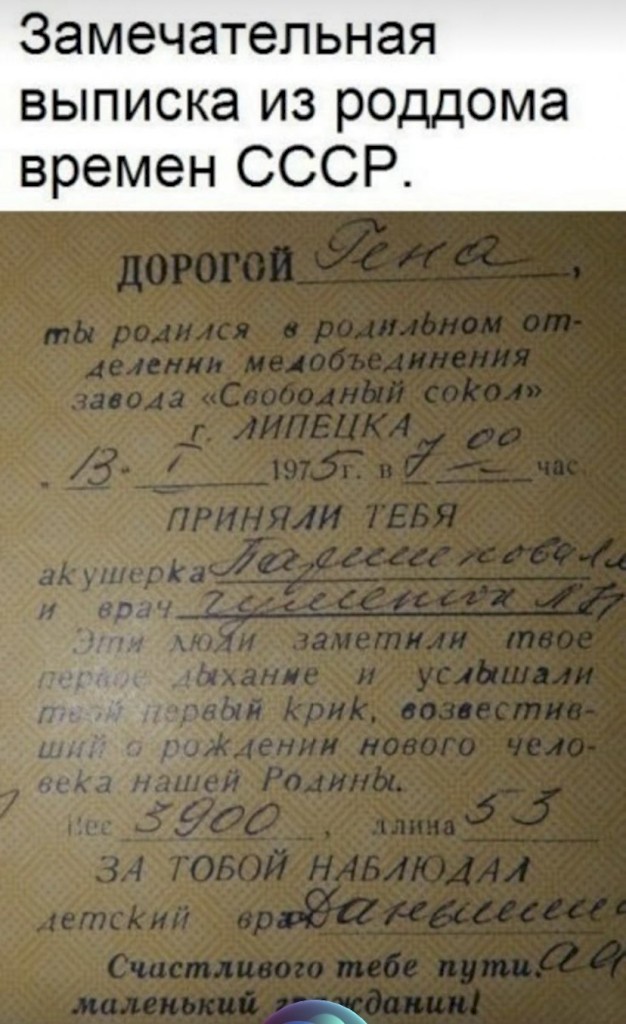 Замечательная
выписка из роддома
времен СССР.
ДОРОГОЙ Гена,
ты родился в родильном от-
делении медобъединения
завода «Свободный сокол»
г. ЛИПЕЦКА
13. I 1975г. в 7 00 час.
ПРИНЯЛИ ТЕБЯ
акушерка
и врач
Эти люди заметили твое
первое дыхание и услышали
твой первый крик, возвестив-
ший о рождении нового чело-
века нашей Родины.
Вес 3900, длина 53
ЗА ТОБОЙ НАБЛЮДАЛ
детский врач
Счастливого тебе пути,
маленький гражданин!